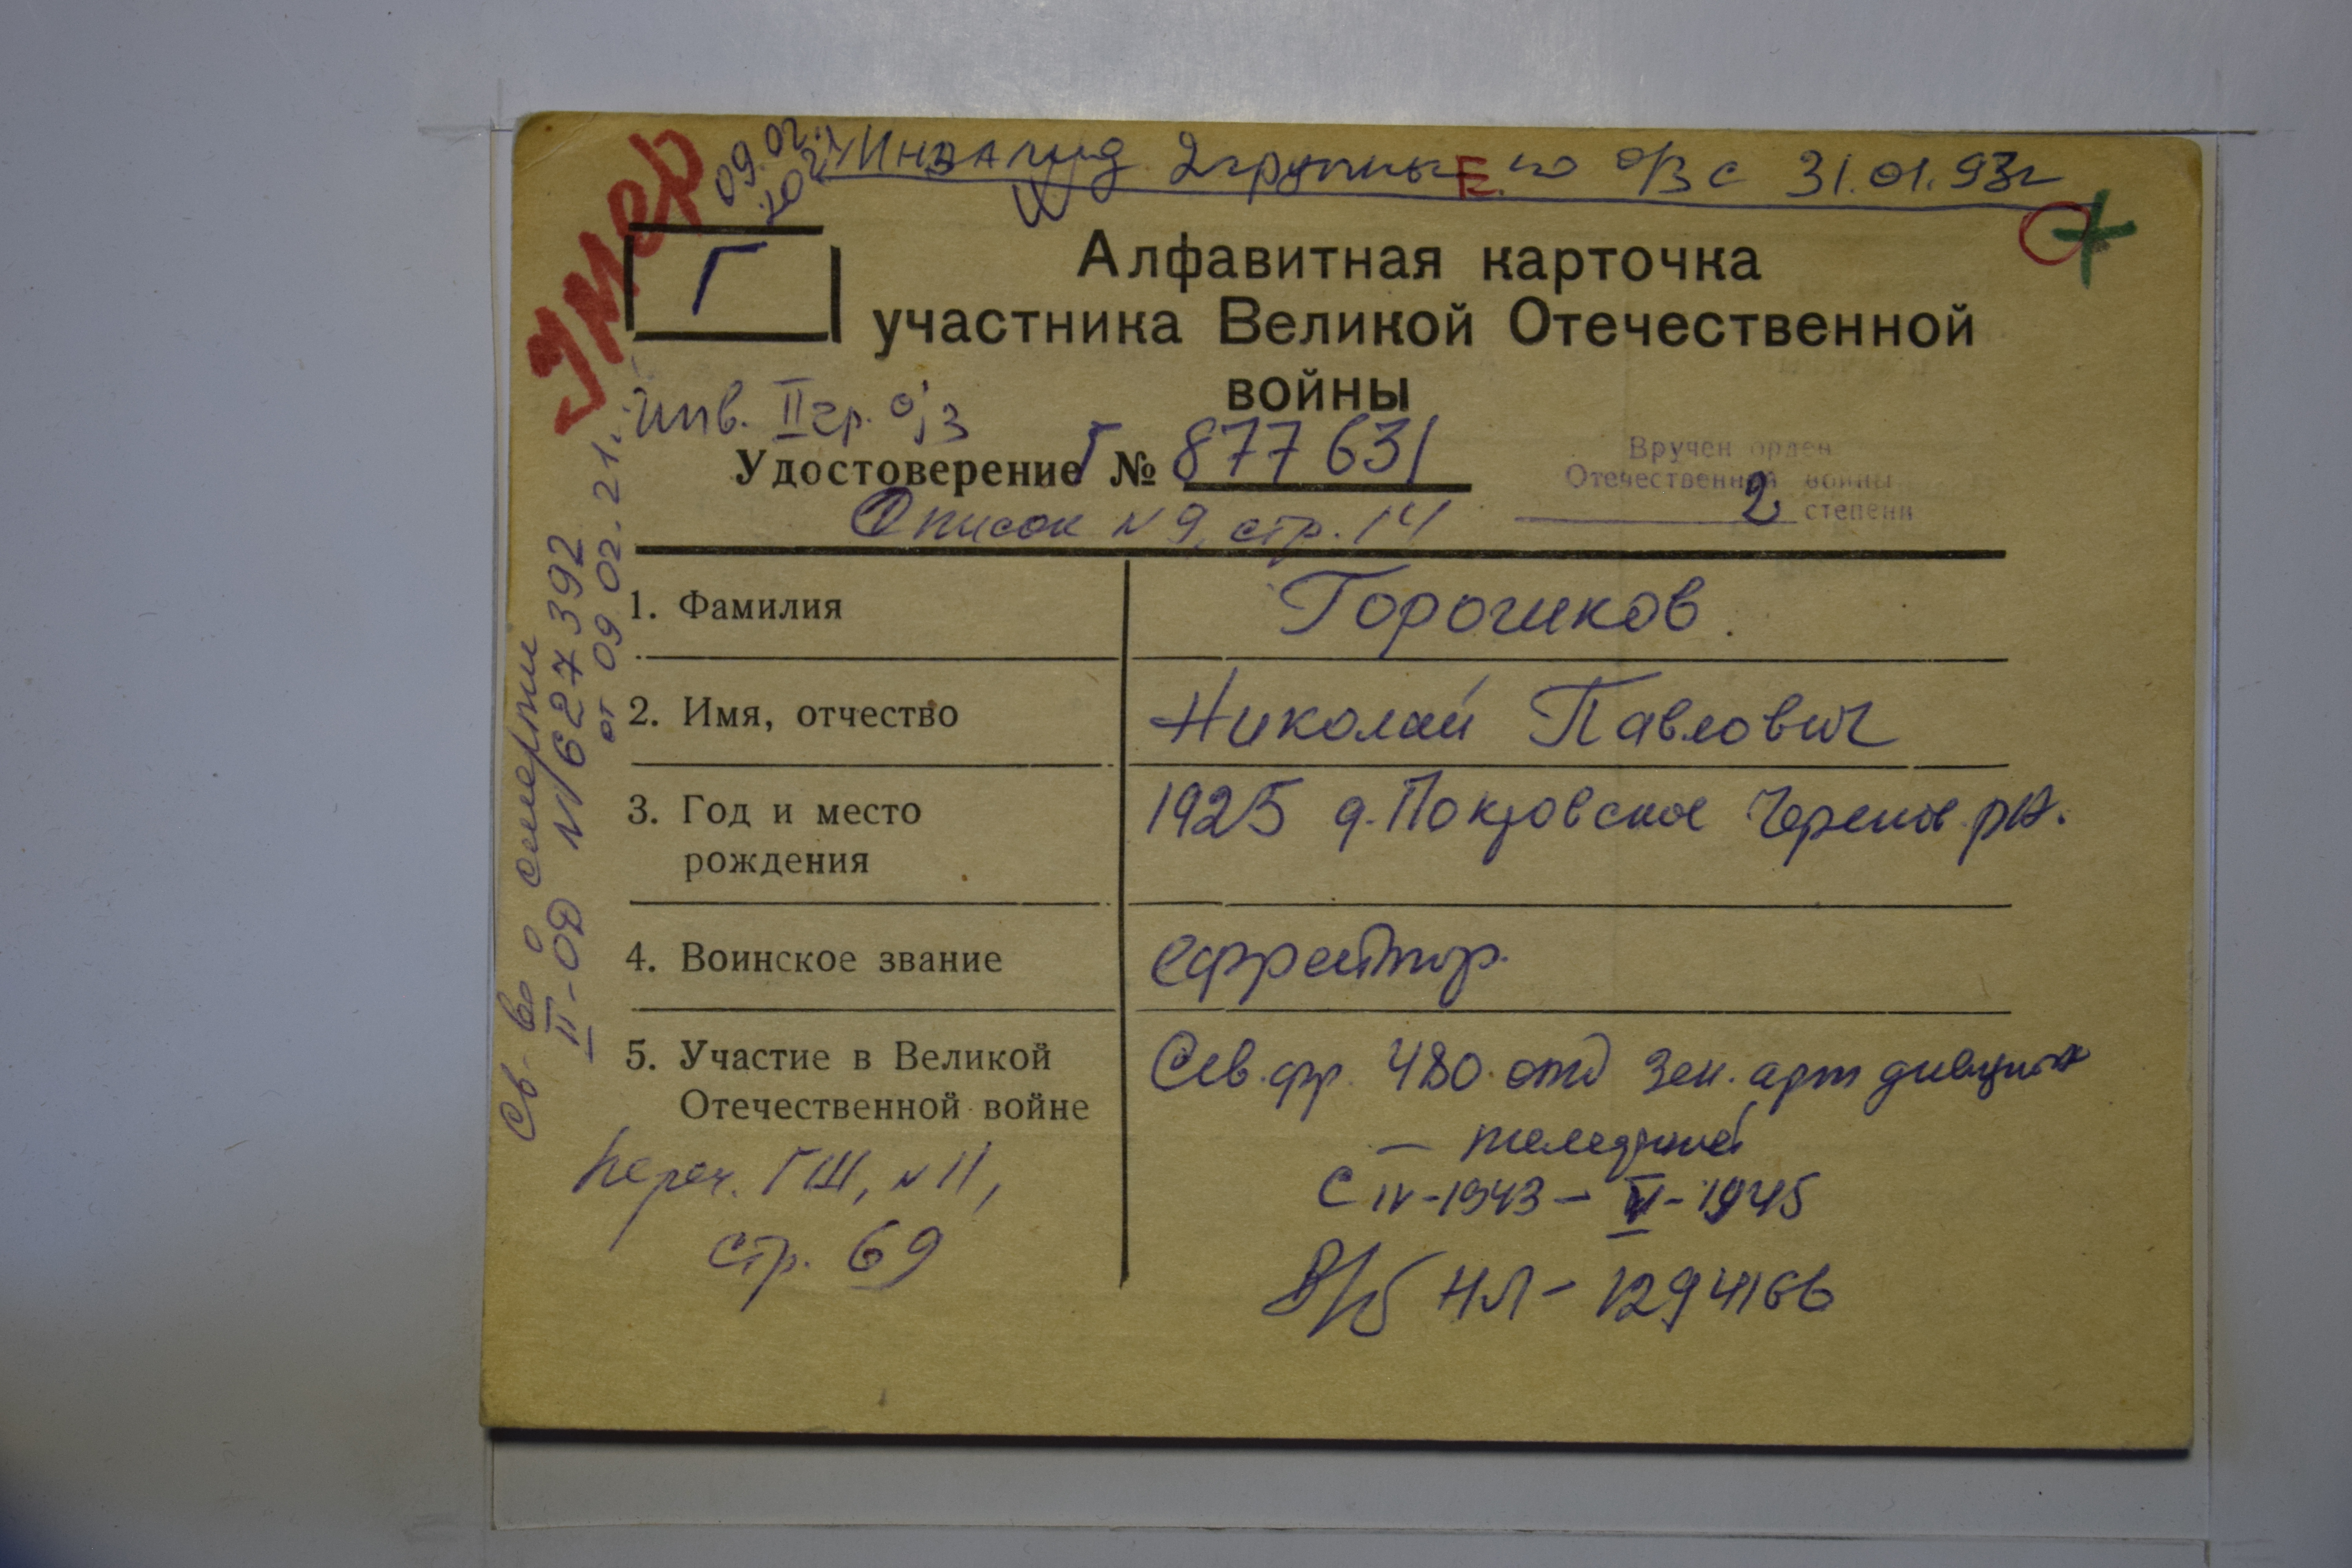 Умер
09.02.
2021
Инвалид 2 группы Е по о/з с 31.01.93г
Г
Алфавитная карточка
участника Великой Отечественной
войны
Инв. II гр. о/з
Удостоверение Г № 877 631
Вручен орден
Отечественной войны
2 степени
Список N 9, стр. 14
Св-во о смерти
II-ОД N 627392
от 09.02.21.
1. Фамилия
Горошков
2. Имя, отчество
Николай Павлович
3. Год и место
рождения
1925 д. Покровское Черепов. р-н.
4. Воинское звание
ефрейтор.
5. Участие в Великой
Отечественной войне
Сев. фр. 480 отд зен. арт дивизион
С IV-1943 – V-1945
В/б НЛ – 1294166
Переч. ГШ, N 11,
стр. 69